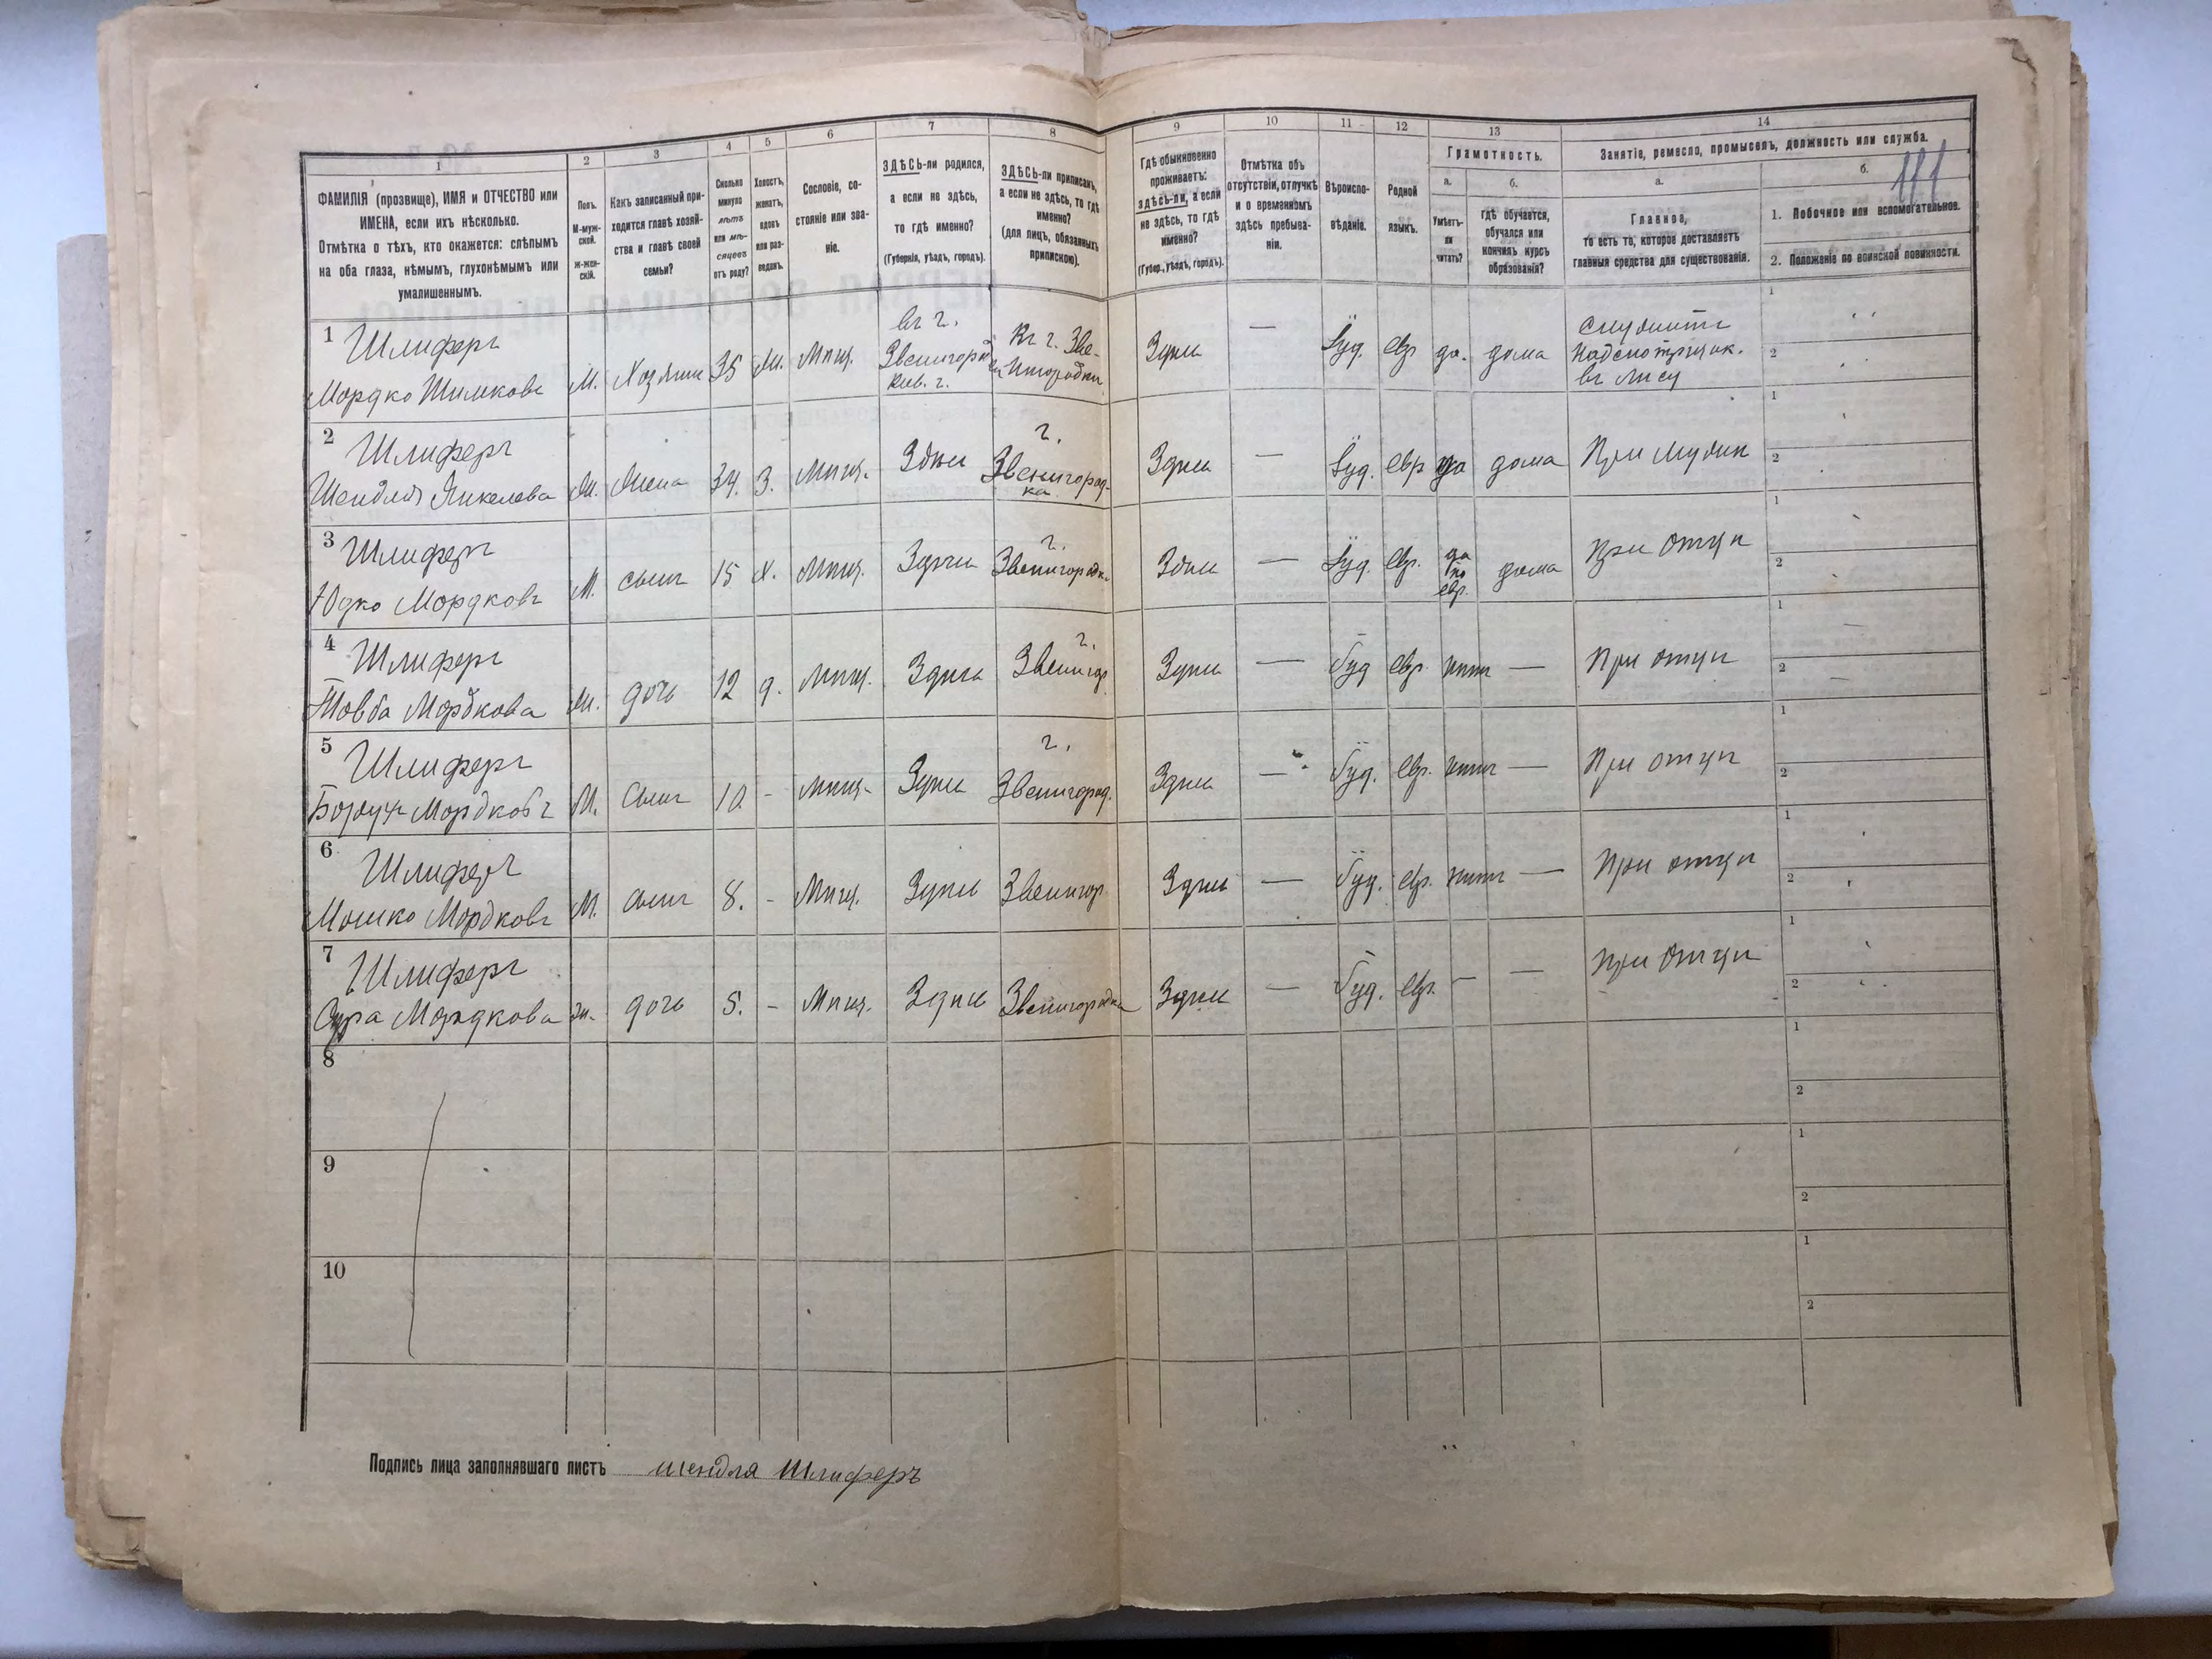 1
2
3
4
5
6
7
8
9
10
11
12
13
14
ФАМИЛІЯ (прозвище), ИМЯ и ОТЧЕСТВО или
ИМЕНА, если ихъ нѣсколько.
Отмѣтка о тѣхъ, кто окажется: слѣпымъ
на оба глаза, нѣмымъ, глухонѣмымъ или
умалишеннымъ.
Полъ.
М-муж-
ской.
Ж-жен-
скій.
Какъ записанный при-
ходится главѣ хозяй-
ства и главѣ своей
семьи?
Сколько
минуло
лѣтъ
или мѣ-
сяцевъ
отъ роду?
Холостъ,
женатъ,
вдовъ
или раз-
веденъ.
Сословіе, со-
стояніе или зва-
ніе.
ЗДѢСЬ-ли родился,
а если не здѣсь,
то гдѣ именно?
(Губернія, уѣздъ, городъ).
ЗДѢСЬ-ли приписанъ,
а если не здѣсь, то гдѣ
именно?
(для лицъ, обязанныхъ
припискою).
Гдѣ обыкновенно
проживаетъ:
здѣсь-ли, а если
не здѣсь, то гдѣ
именно?
(Губер., уѣздъ, городъ).
Отмѣтка объ
отсутствіи, отлучкѣ
и о временномъ
здѣсь пребыва-
ніи.
Вѣроиспо-
вѣданіе.
Родной
языкъ.
Грамотность.
а.
Умѣетъ-
ли
читать?
б.
Гдѣ обучается,
обучался или
кончилъ курсъ
образованія?
Занятіе, ремесло, промыселъ, должность или служба.
а.
Главное,
то есть то, которое доставляетъ
главныя средства для существованія.
б.
111
1. Побочное или вспомогательное.
2. Положеніе по воинской повинности.
1 Шлиферъ
Мордко Шимковъ
М. Хозяинъ 35 Ж. Мѣщ.
въ г.
Звенигородкѣ
Кіев. г.
Къ г. Зве-
нигородки
Здѣсь — Іуд. евр да. дома
служитъ
надсмотрщик.
въ лѣсу
1
2
2 Шлиферъ
Шендля Янкелева Ж. Жена 34. З. Мѣщ. Здѣсь
г.
Звенигород-
ка
Здѣсь — Іуд. евр да дома При мужѣ
1
2
3 Шлиферъ
Юдко Мордковъ М. сынъ 15 Х. Мѣщ. Здѣсь
г.
Звенигородка
Здѣсь — Іуд. евр.
да
по
евр.
дома При отцѣ
1
2
4 Шлиферъ
Товба Мордкова Ж. дочь 12 д. Мѣщ. Здѣсь
г.
Звенигор.
Здѣсь — Іуд евр. нѣтъ — При отцѣ
1
2
5 Шлиферъ
Борухъ Мордковъ М. Сынъ 10. - мѣщ. Здѣсь
г.
Звенигород.
Здѣсь — Іуд. евр. нѣтъ — При отцѣ
1
2
6 Шлиферъ
Мошко Мордковъ М. сынъ 8. - Мѣщ. Здѣсь Звенигор.
Здѣсь — Іуд. евр. нѣтъ — При отцѣ
1
2
7 Шлиферъ
Сура Мордкова Ж. дочь 5. - Мѣщ. Здѣсь Звенигородка
Здѣсь — Іуд. евр. — — При отцѣ
1
2
8
1
2
9
1
2
10
1
2
Подпись лица заполнявшаго листъ шендля Шлиферъ